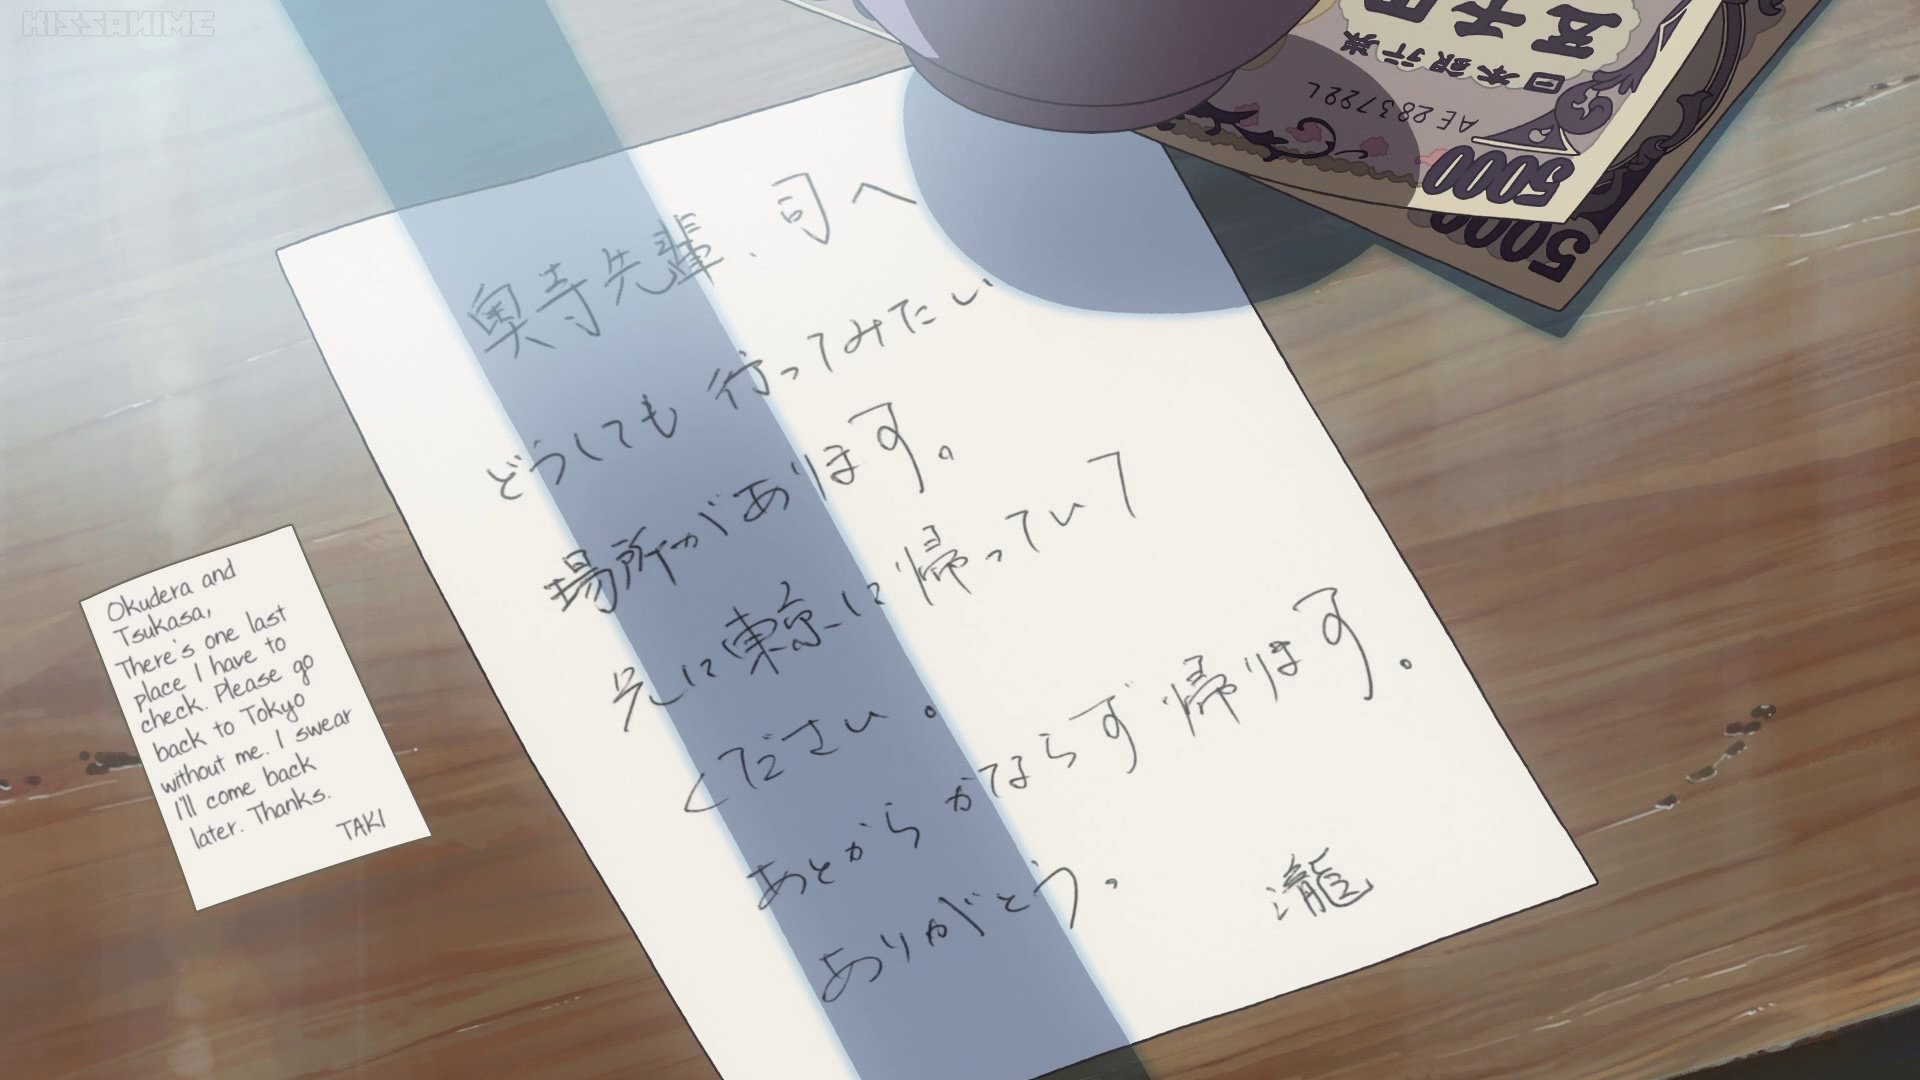 KISSANIME
五千円
日本銀行券
AE283722L
5000
5000
奥寺先輩、司へ
どうしても行ってみたい
場所があります。
先に東京に帰っていて
ください。
あとからかならず帰ります。
ありがとう。
瀧
Okudera and
Tsukasa,
There's one last
place I have to
check. Please go
back to Tokyo
without me. I swear
I'll come back
later. Thanks.
TAKI